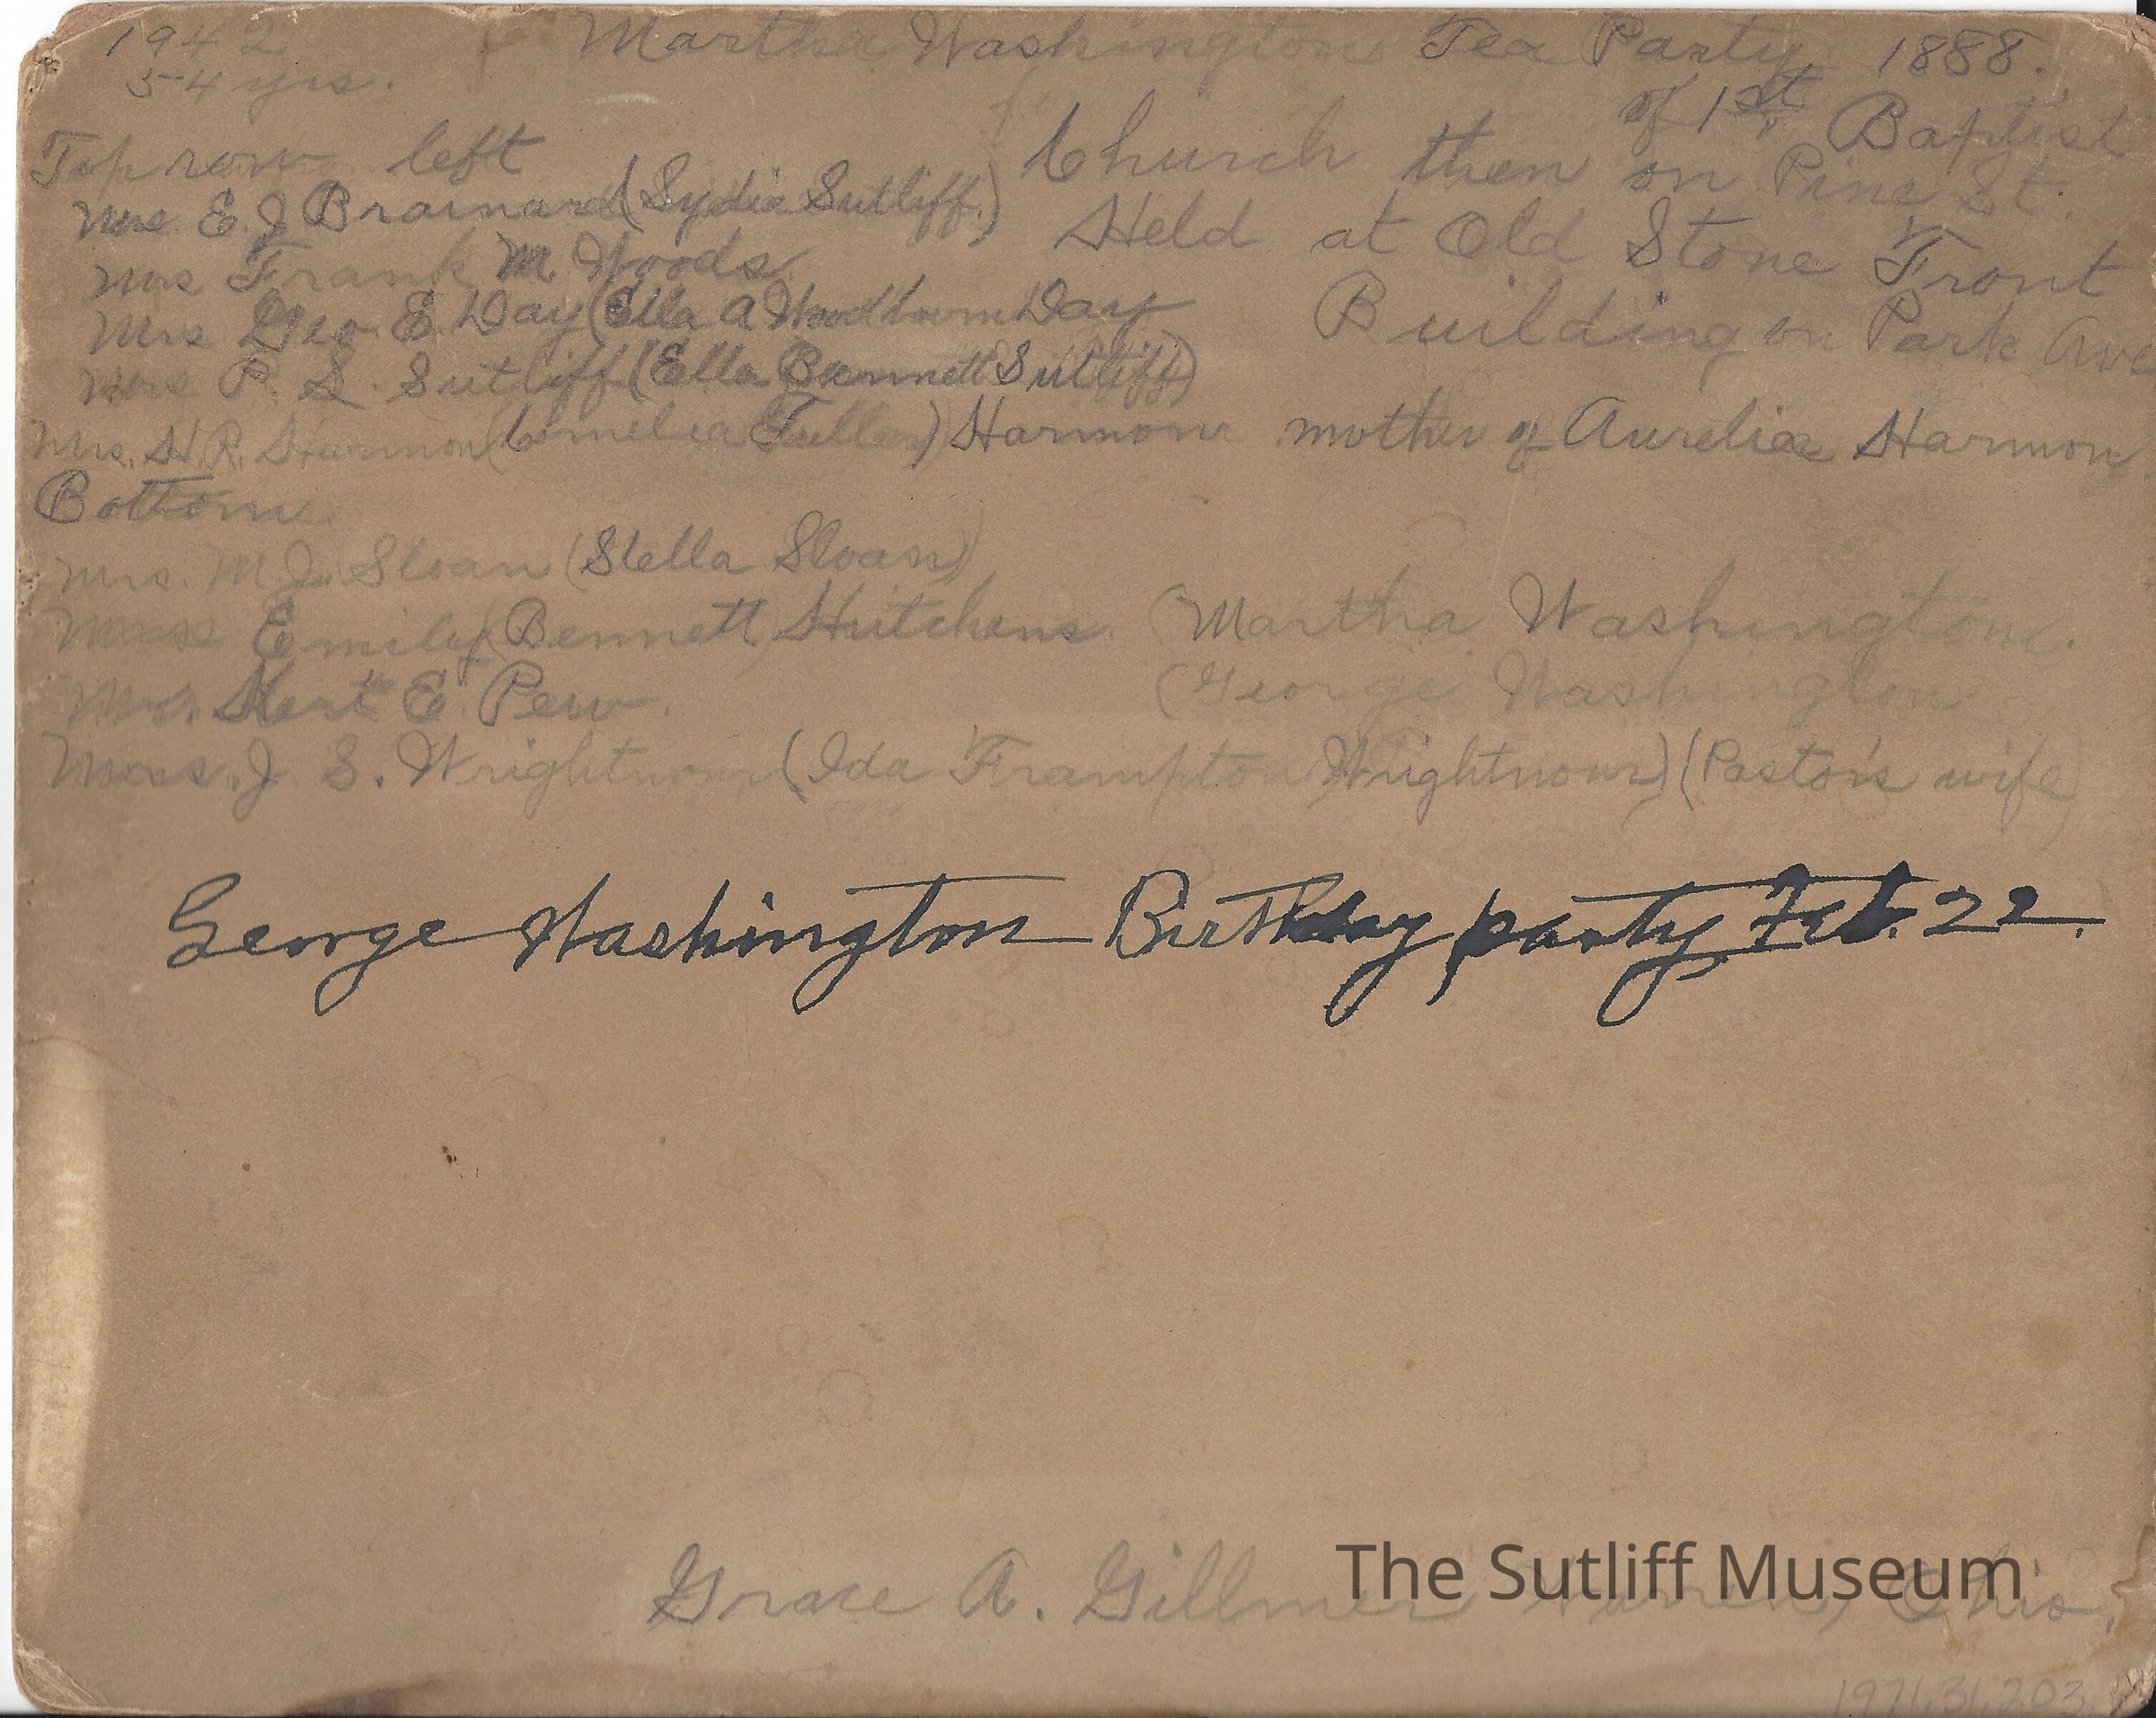 1942 Martha Washington Tea Party 1888.
54 yrs.
of 1st Baptist
Church then on Pine St.
Held at Old Stone Front
Building on Park Ave
Top row left
Mrs. E. J Brainard (Lydia Sutliff)
Mrs Frank M. Woods
Mrs Geo. E. Day (Ella A Day
Mrs P. S. Sutliff (Ella Bennett Sutliff)
Mrs. H. R. Harmon (Cornelia Fuller) Harmon mother of Aurelia Harmon
Bottom
Mrs. M. J. Sloan (Stella Sloan)
Emily (Bennett) Hutchens (Martha Washington.
E. Pew. (George Washington
J. S. Wrightnour (Ida Frampton Wrightnour) (Pastor's wife)
George Washington Birthday party Feb. 22.
The Sutliff Museum
Grace A. Gillmer Warren, Ohio.
1971.31.203